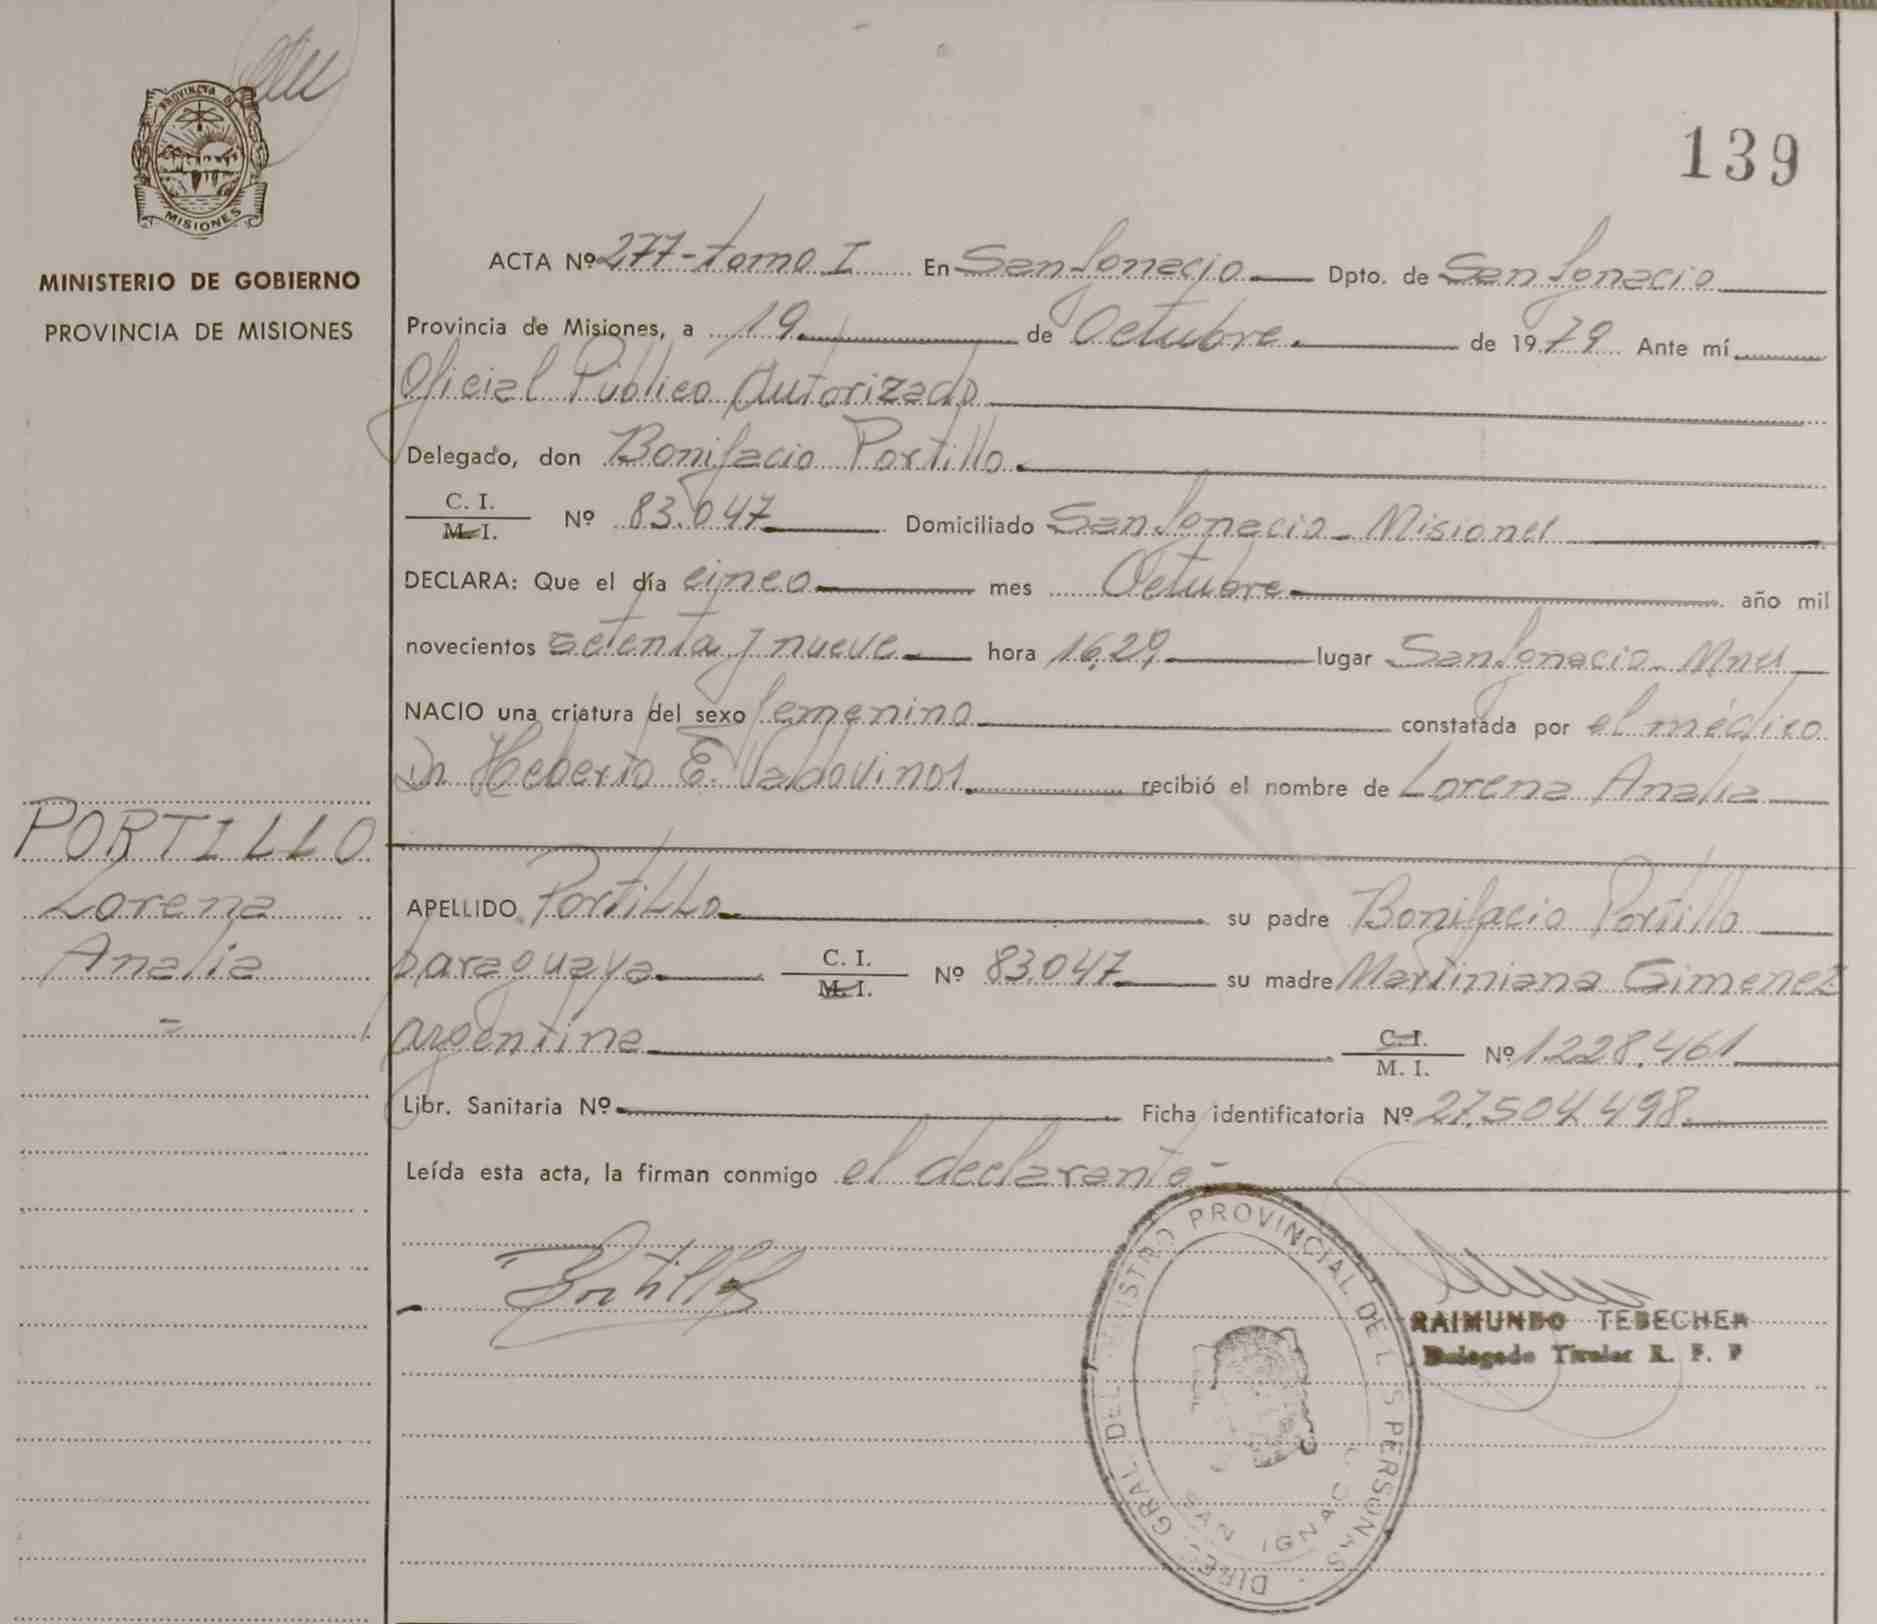 PROVINCIA DE
MISIONES
MINISTERIO DE GOBIERNO
PROVINCIA DE MISIONES
139
ACTA Nº 277-tomo I En San Ignacio Dpto. de San Ignacio
Provincia de Misiones, a 19 de Octubre de 1979 Ante mí
Oficial Público Autorizado
Delegado, don Bonifacio Portillo
C. I.
M. I. Nº 83.047 Domiciliado San Ignacio - Misiones
DECLARA: Que el día cinco mes Octubre año mil
novecientos setenta y nueve hora 16,29 lugar San Ignacio - Mnes
NACIO una criatura del sexo femenino constatada por el médico
Dr. Heberto E. Valdovinos recibió el nombre de Lorena Analia
PORTILLO
Lorena
Analia
=
APELLIDO Portillo su padre Bonifacio Portillo
paraguaya C. I.
M. I. Nº 83.047 su madre Martiniana Gimenez
argentina C. I.
M. I. Nº 1.228.461
Libr. Sanitaria Nº Ficha identificatoria Nº 27.504.498
Leída esta acta, la firman conmigo el declarante -
Portillo
RAIMUNDO TEBECHER
Delegado Titular R. P. P
DIREC. GRAL DEL REGISTRO PROVINCIAL DE LAS PERSONAS
SAN IGNACIO